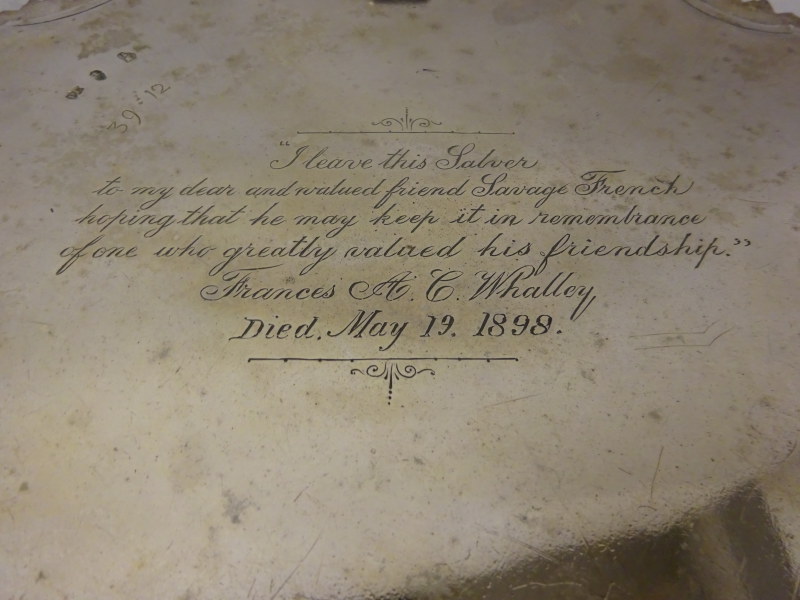 39=12
"I leave this Salver
to my dear and valued friend Savage French
hoping that he may keep it in remembrance
of one who greatly valued his friendship."
Frances A. C. Whalley
Died. May 19. 1898.